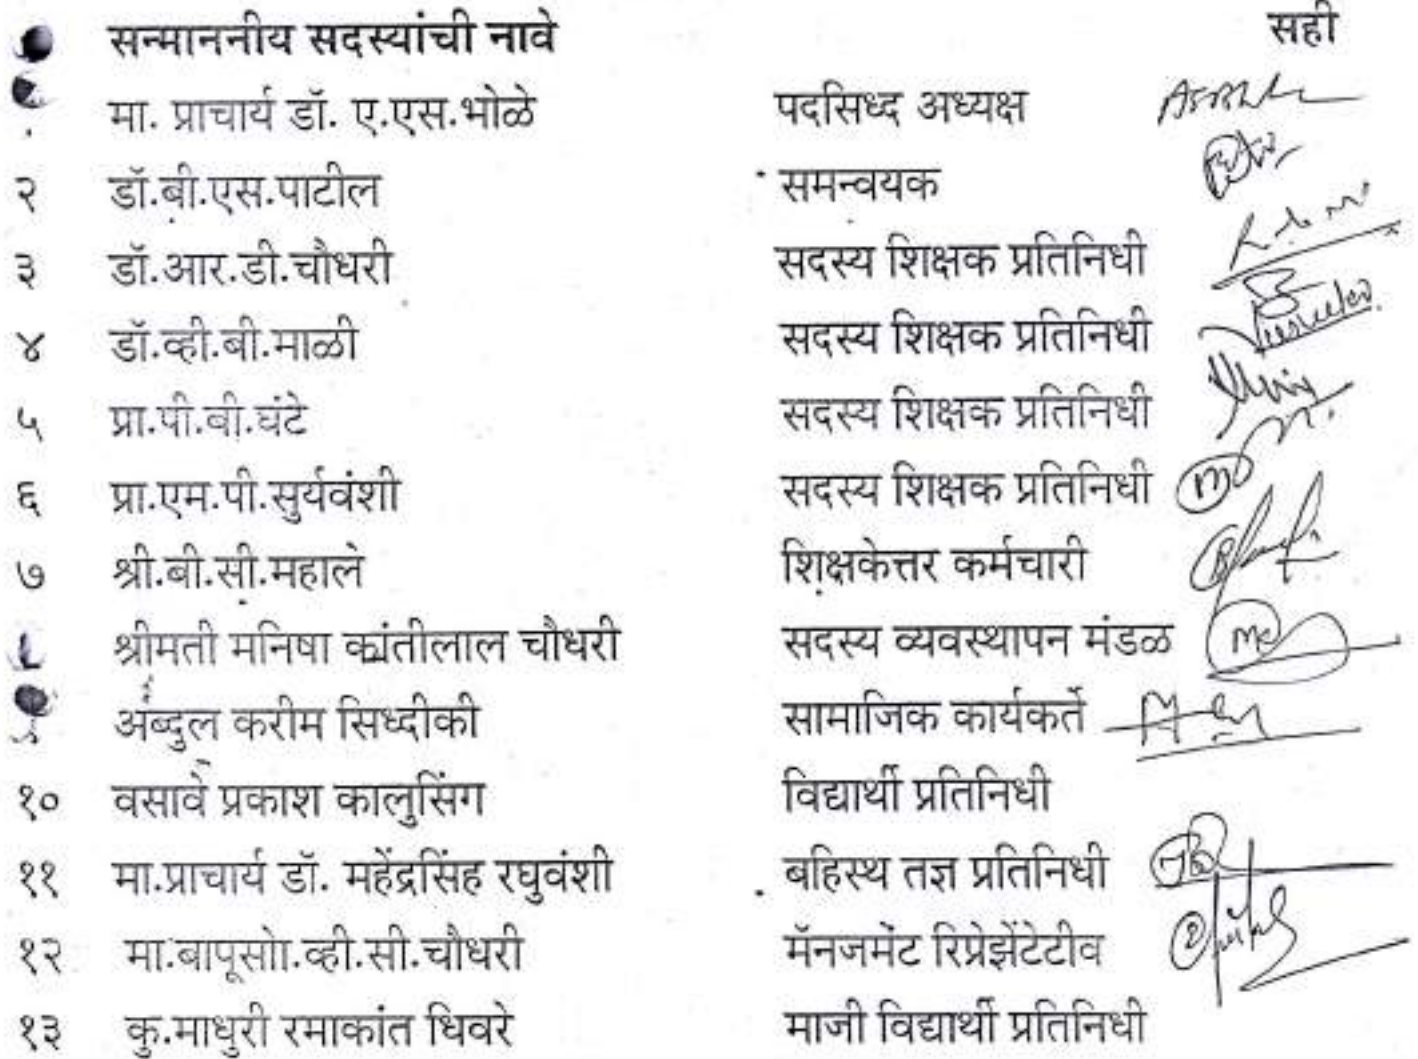 सन्माननीय सदस्यांची नावे सही
मा. प्राचार्य डॉ. ए.एस.भोळे पदसिध्द अध्यक्ष
२ डॉ.बी.एस.पाटील समन्वयक
३ डॉ.आर.डी.चौधरी सदस्य शिक्षक प्रतिनिधी
४ डॉ.व्ही.बी.माळी सदस्य शिक्षक प्रतिनिधी
५ प्रा.पी.वी.घंटे सदस्य शिक्षक प्रतिनिधी
६ प्रा.एम.पी.सुर्यवंशी सदस्य शिक्षक प्रतिनिधी
७ श्री.बी.सी.महाले शिक्षकेत्तर कर्मचारी
श्रीमती मनिषा कांतीलाल चौधरी सदस्य व्यवस्थापन मंडळ
अब्दुल करीम सिध्दीकी सामाजिक कार्यकर्ते
१० वसावे प्रकाश कालुसिंग विद्यार्थी प्रतिनिधी
११ मा.प्राचार्य डॉ. महेंद्रसिंह रघुवंशी बहिस्थ तज्ञ प्रतिनिधी
१२ मा.बापूसाो.व्ही.सी.चौधरी मॅनजमेंट रिप्रेझेंटेटीव
१३ कु.माधुरी रमाकांत धिवरे माजी विद्यार्थी प्रतिनिधी